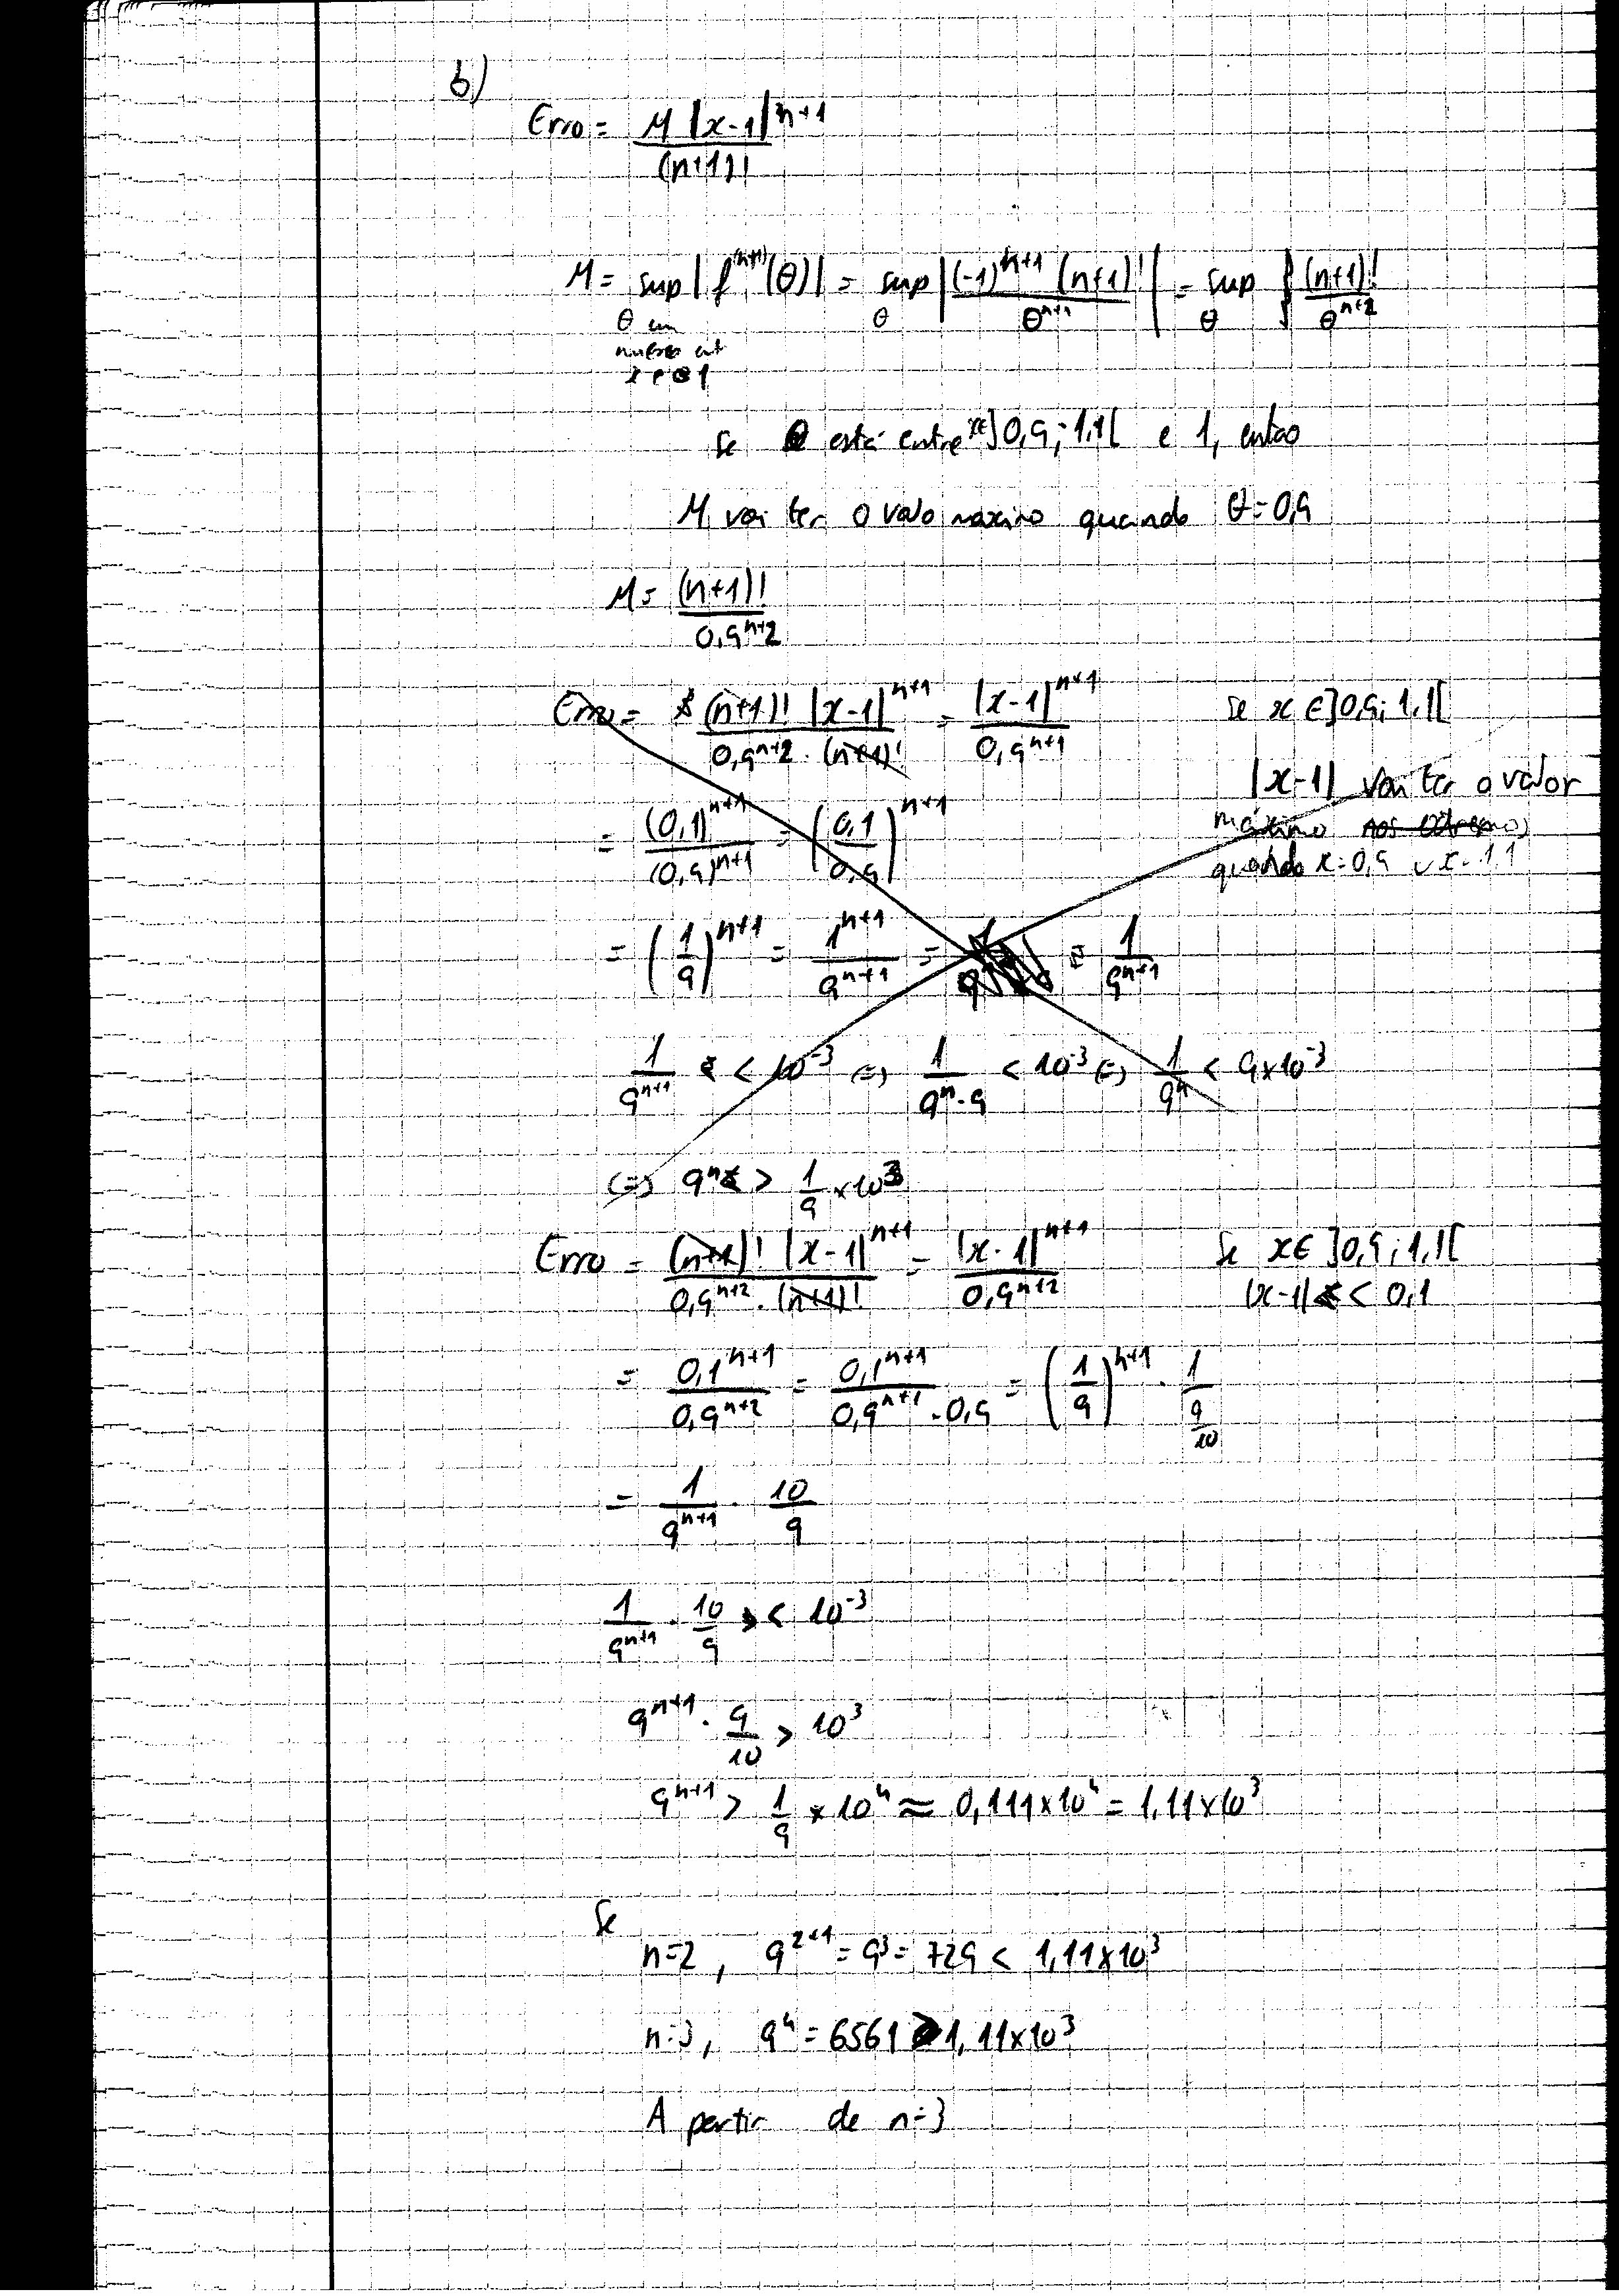 b)
Erro = M |x-1|^{n+1} / (n+1)!
M = sup |f^{(n+1)}(θ)| = sup |(-1)^{n+1} (n+1)! / θ^{n+1}| = sup (n+1)! / θ^{n+2}
θ um θ θ
Se θ está entre x∈]0,9;1,1[ e 1, então
M vai ter o valo máximo quando θ=0,9
M = (n+1)! / 0,9^{n+2}
Erro = (n+1)! |x-1|^{n+1} / 0,9^{n+2} · (n+1)! = |x-1|^{n+1} / 0,9^{n+1} Se x ∈ ]0,9; 1,1[
|x-1| vai ter o valor
máximo
quando x=0,9 ∨ x=1,1
= (0,1)^{n+1} / (0,9)^{n+1} = (0,1 / 0,9)^{n+1}
= (1/9)^{n+1} = 1^{n+1} / 9^{n+1} = = 1 / 9^{n+1}
1 / 9^{n+1} < 10^{-3} (=) 1 / 9^n · 9 < 10^{-3} (=) 1 / 9^n < 9×10^{-3}
(=) 9^n > 1/9 × 10^3
Erro = (n+1)! |x-1|^{n+1} / 0,9^{n+2} · (n+1)! = |x-1|^{n+1} / 0,9^{n+2} Se x∈ ]0,9;1,1[
|x-1| < 0,1
= 0,1^{n+1} / 0,9^{n+2} = 0,1^{n+1} / 0,9^{n+1} · 0,9 = (1/9)^{n+1} · 1 / (9/10)
= 1 / 9^{n+1} · 10/9
1 / 9^{n+1} · 10/9 < 10^{-3}
9^{n+1} · 9/10 > 10^3
9^{n+1} > 1/9 × 10^4 ≈ 0,111×10^4 = 1,11×10^3
Se
n=2, 9^{2+1} = 9^3 = 729 < 1,11×10^3
n=3, 9^4 = 6561 > 1,11×10^3
A partir de n=3